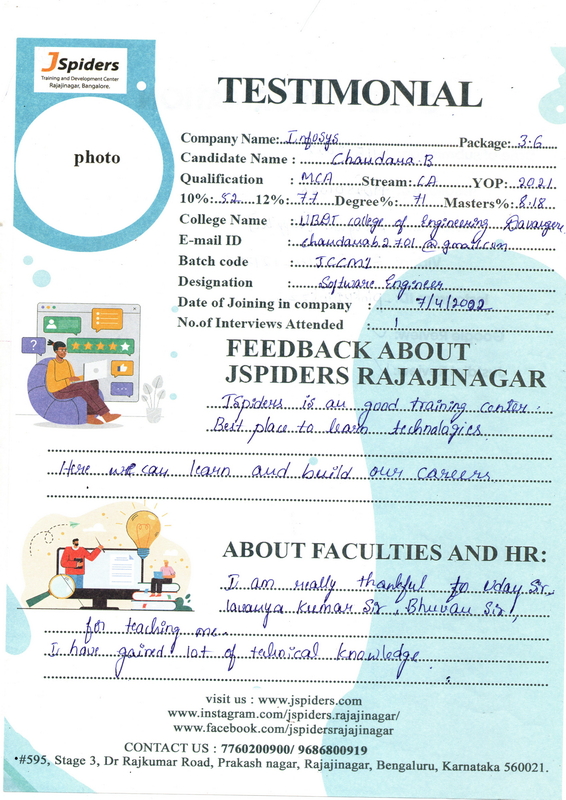 JSpiders
Training and Development Center
Rajajinagar, Bangalore.
TESTIMONIAL
photo
Company Name: Infosys Package: 3.6
Candidate Name : Chandana B
Qualification : MCA Stream: CA YOP: 2021
10%: 52 12%: 77 Degree%: 71 Masters%: 8.18
College Name : UBDT College of Engineering Davangere
E-mail ID : chandanab2701@gmail.com
Batch code : JCCM1
Designation : Software Engineer
Date of Joining in company : 7/4/2022
No.of Interviews Attended : 1
FEEDBACK ABOUT
JSPIDERS RAJAJINAGAR
JSpiders is an good training center.
Best place to learn technologies
Here we can learn and build our careers
ABOUT FACULTIES AND HR:
I am really thankful for Uday Sir,
lavanya Kumar Sir, Bhuvan Sir,
for teaching me.
I have gained lot of tehnical knowledge
visit us : www.jspiders.com
www.instagram.com/jspiders.rajajinagar/
www.facebook.com/jspidersrajajinagar
CONTACT US : 7760200900/ 9686800919
•#595, Stage 3, Dr Rajkumar Road, Prakash nagar, Rajajinagar, Bengaluru, Karnataka 560021.